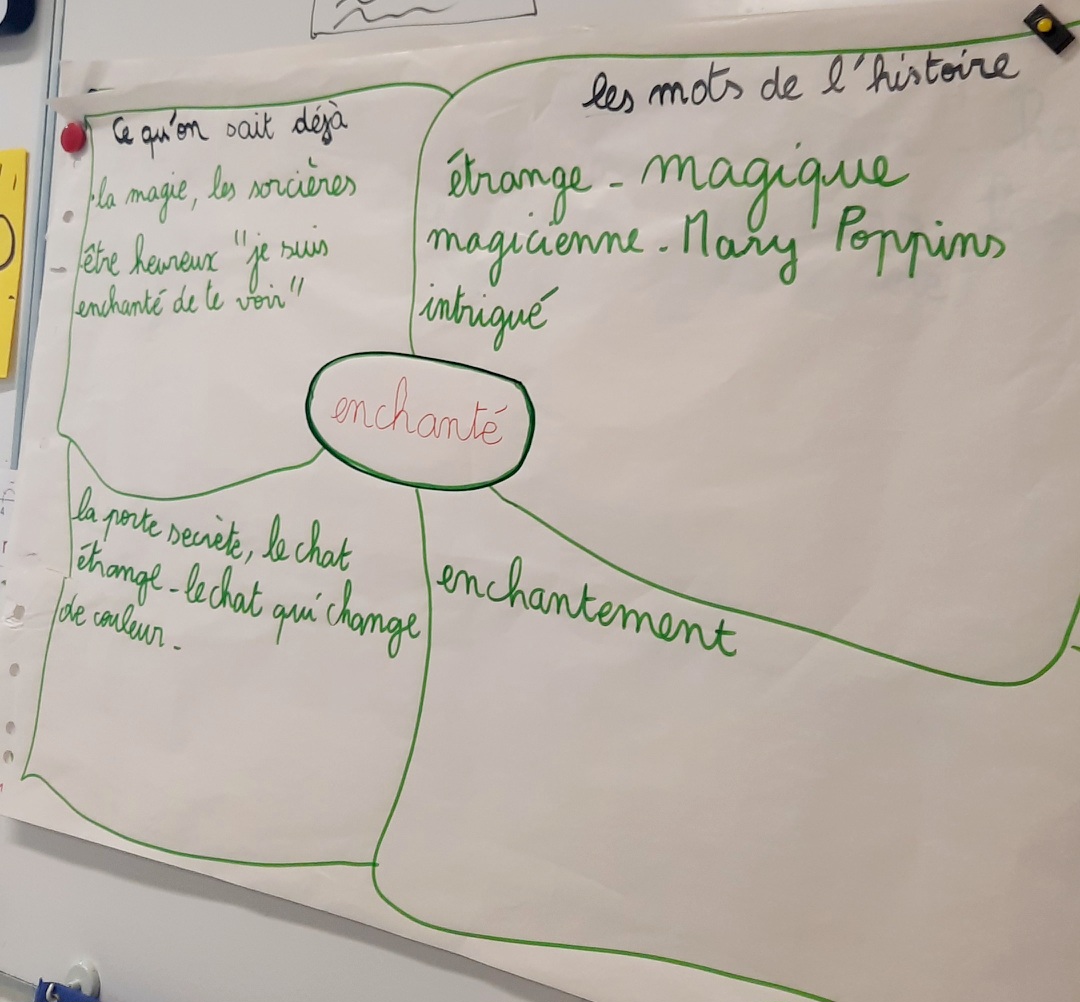 Ce qu'on sait déjà
la magie, les sorcières
être heureux "je suis
enchanté de te voir"
les mots de l'histoire
étrange - magique
magicienne - Mary Poppins
intrigué
enchanté
la porte secrète, le chat
étrange - le chat qui change
de couleur.
enchantement